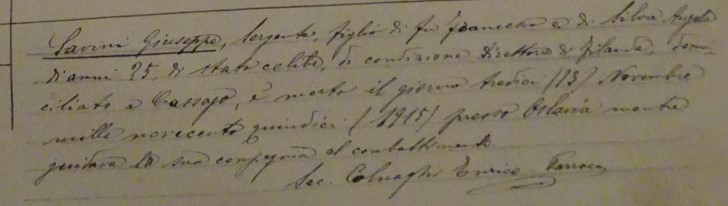 Savini Giuseppe, Sergente, figlio di fu Francesco e di Silva Angela
di anni 25. di stato celibe, di condizione Direttore di Filanda, domi-
ciliato a Cassago, è morto il giorno tredici (13) Novembre
mille novecento quindici (1915) presso Oslavia mentre
guidava la sua compagnia al combattimento.
Sac. Colnaghi Enrico Parroco